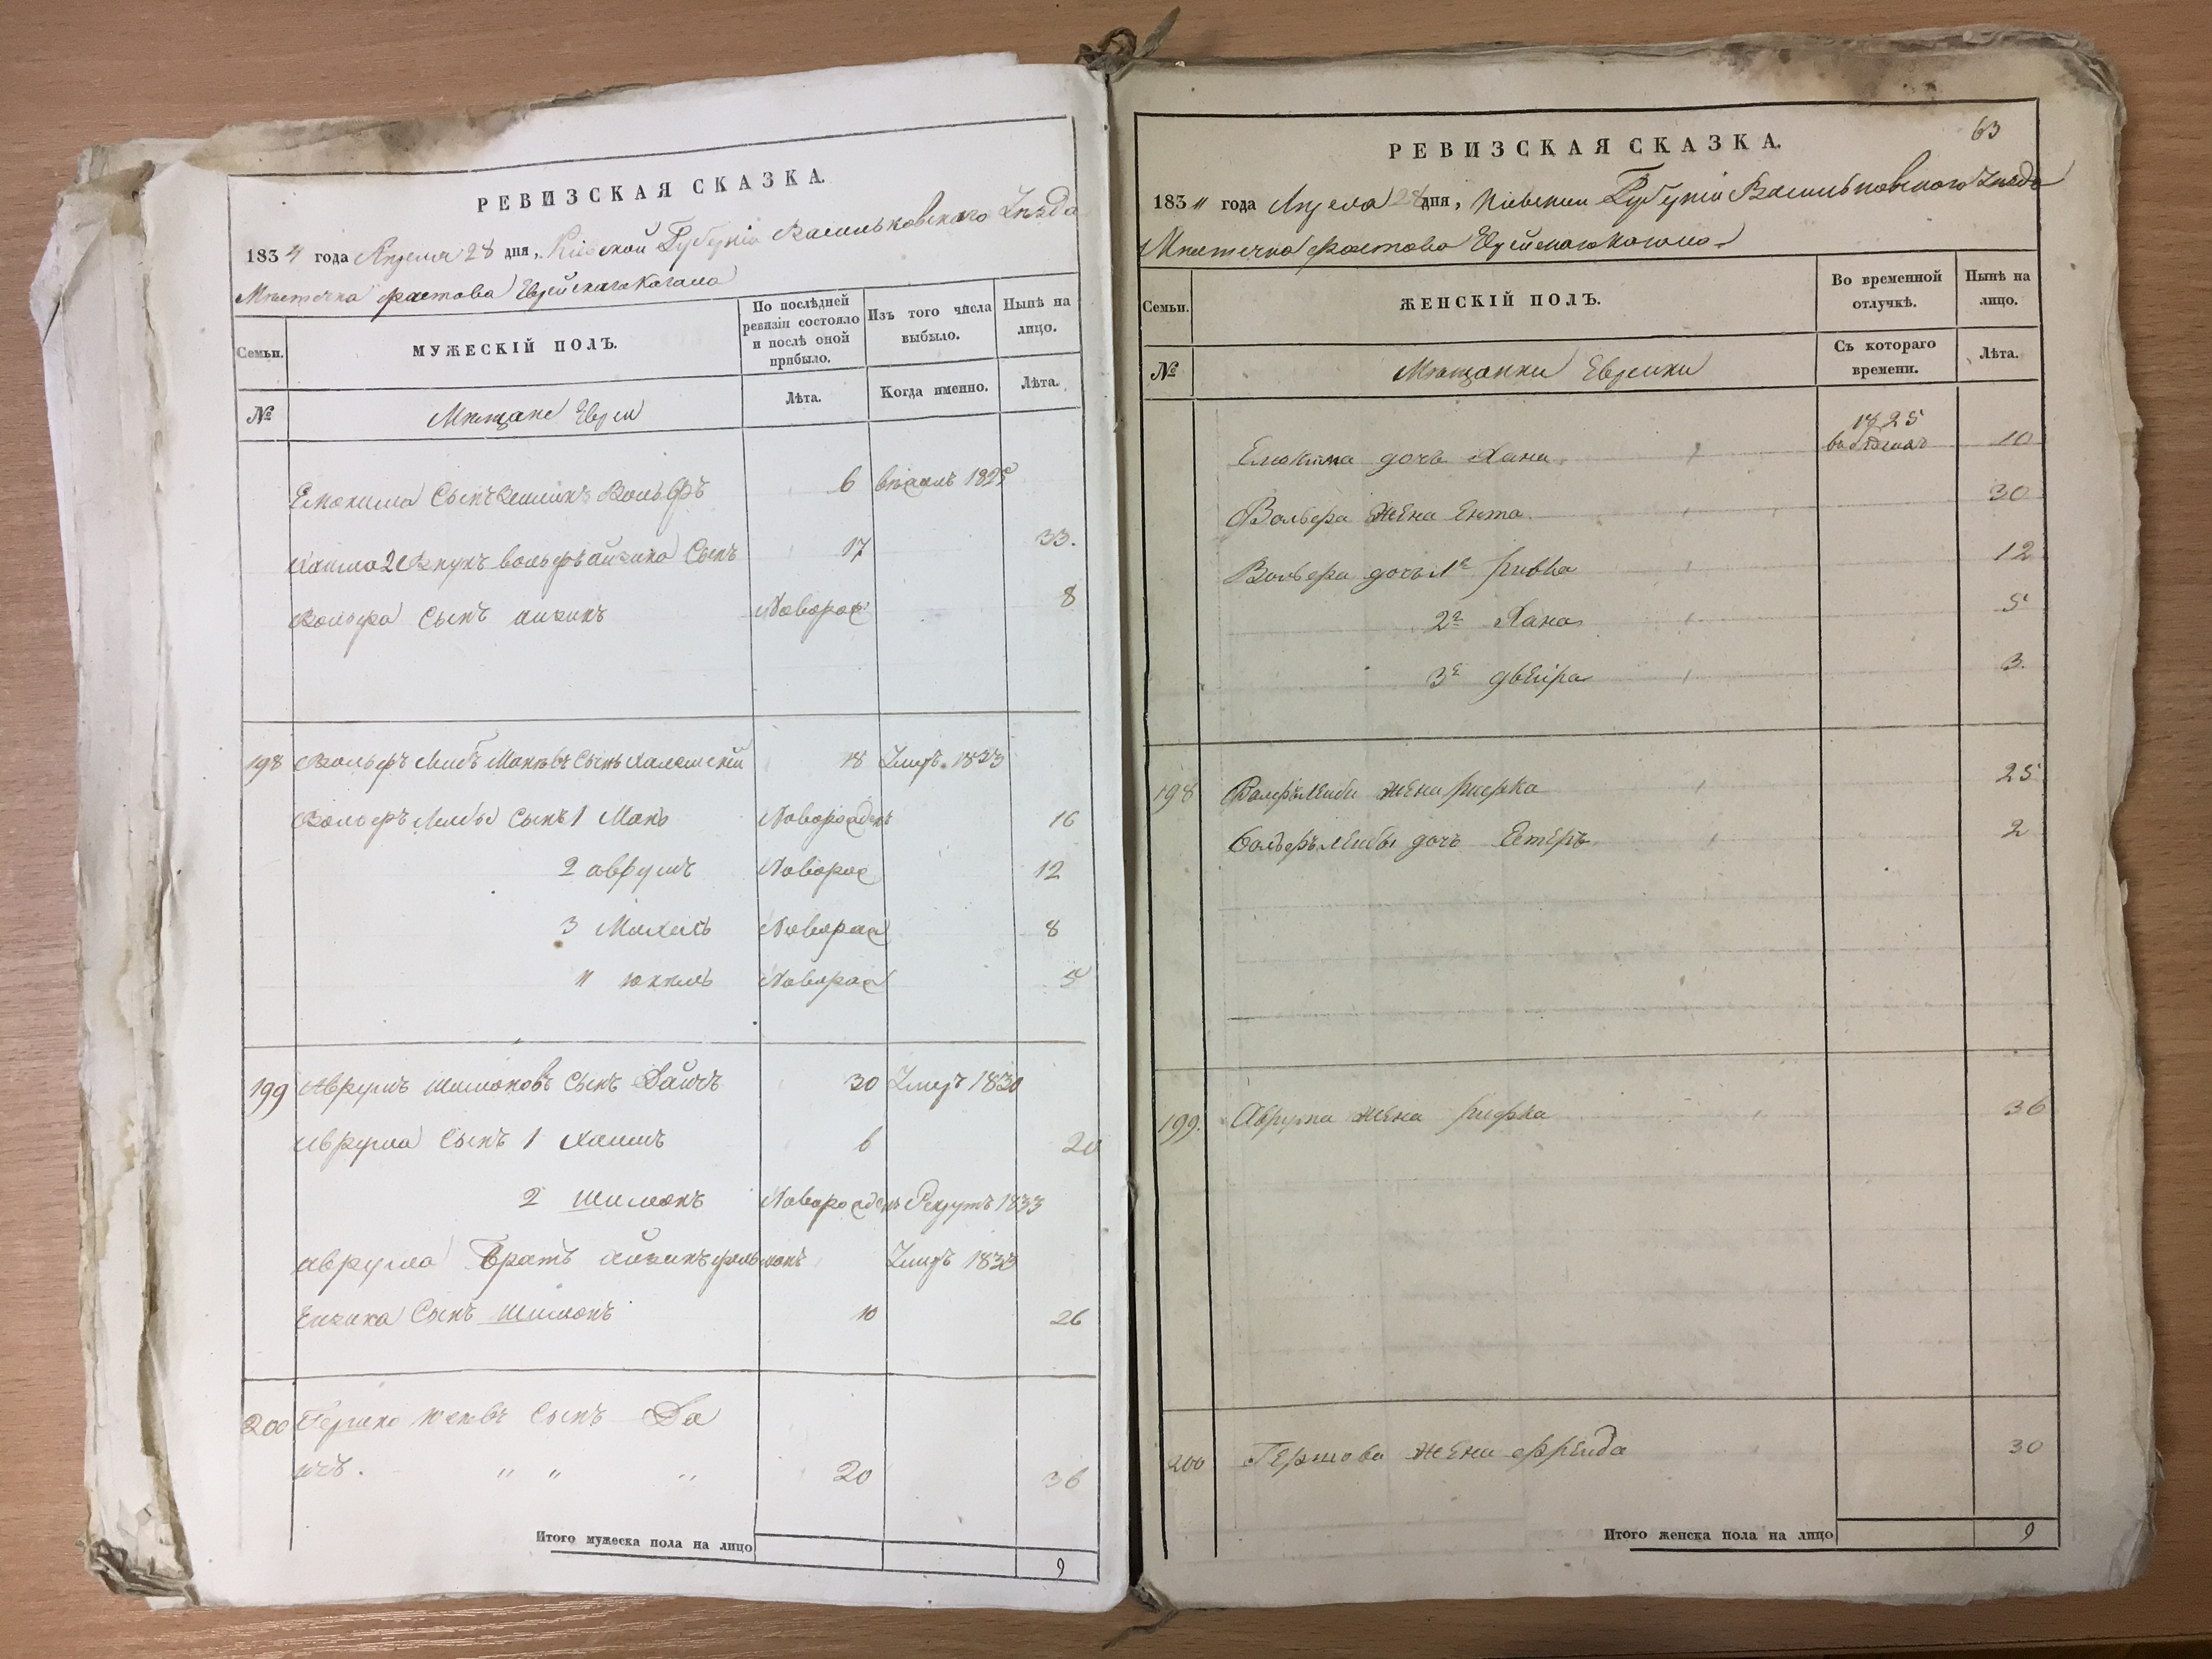 РЕВИЗСКАЯ СКАЗКА.
1834 года Апреля 28 дня, Кіевской Губерніи Васильковскаго Уезда
Местечка Фастова Еврейскаго Кагала
Семьи.
МУЖЕСКІЙ ПОЛЪ.
По послѣдней ревизіи состояло и послѣ оной прибыло.
Изъ того числа выбыло.
Нынѣ на лицо.
№
Мещане Евреи
Лѣта.
Когда именно.
Лѣта.
Сынъ Вольфъ 6 1825
Внукъ Вольфъ Сынъ 17 33.
Вольфа Сынъ Новорож 8
198 Вольфъ Лейбъ Сынъ 18 Умеръ 1823
Вольфъ Лейбы Сынъ 1 Новорожденъ 16
2 аврумъ Новорож 12
3 Новорож 8
4 Новорож 5
199 Аврумъ Шимоновъ Сынъ Дайчъ 30 Умеръ 1830
Аврума Сынъ 1 Хаимъ 6 20
2 Шимонъ Новорожденъ Рекрутъ 1833
аврума Братъ Умеръ 1833
Сынъ Шимонъ 10 26
200 Сынъ Да
ичъ. " " " 20 36
Итого мужеска пола на лицо 9
63
РЕВИЗСКАЯ СКАЗКА.
1834 года Апреля 28 дня, Кіевской Губерніи Васильковскаго Уезда
Местечка Фастова Еврейскаго Кагала
Семьи.
ЖЕНСКІЙ ПОЛЪ.
Во временной отлучкѣ.
Нынѣ на лицо.
№
Мещанки Еврейки
Съ котораго времени.
Лѣта.
1825
дочь Хана 10
Вольфа жена Ента 30
Вольфа дочь 1я Ривка 12
2я Хана 5
3я двейра 3
198 жена Рифка 25
Вольфъ Лейбы дочь Естеръ 2
199. Аврума жена Рифка 36
200 Гершова жена Фрейда 30
Итого женска пола на лицо 9